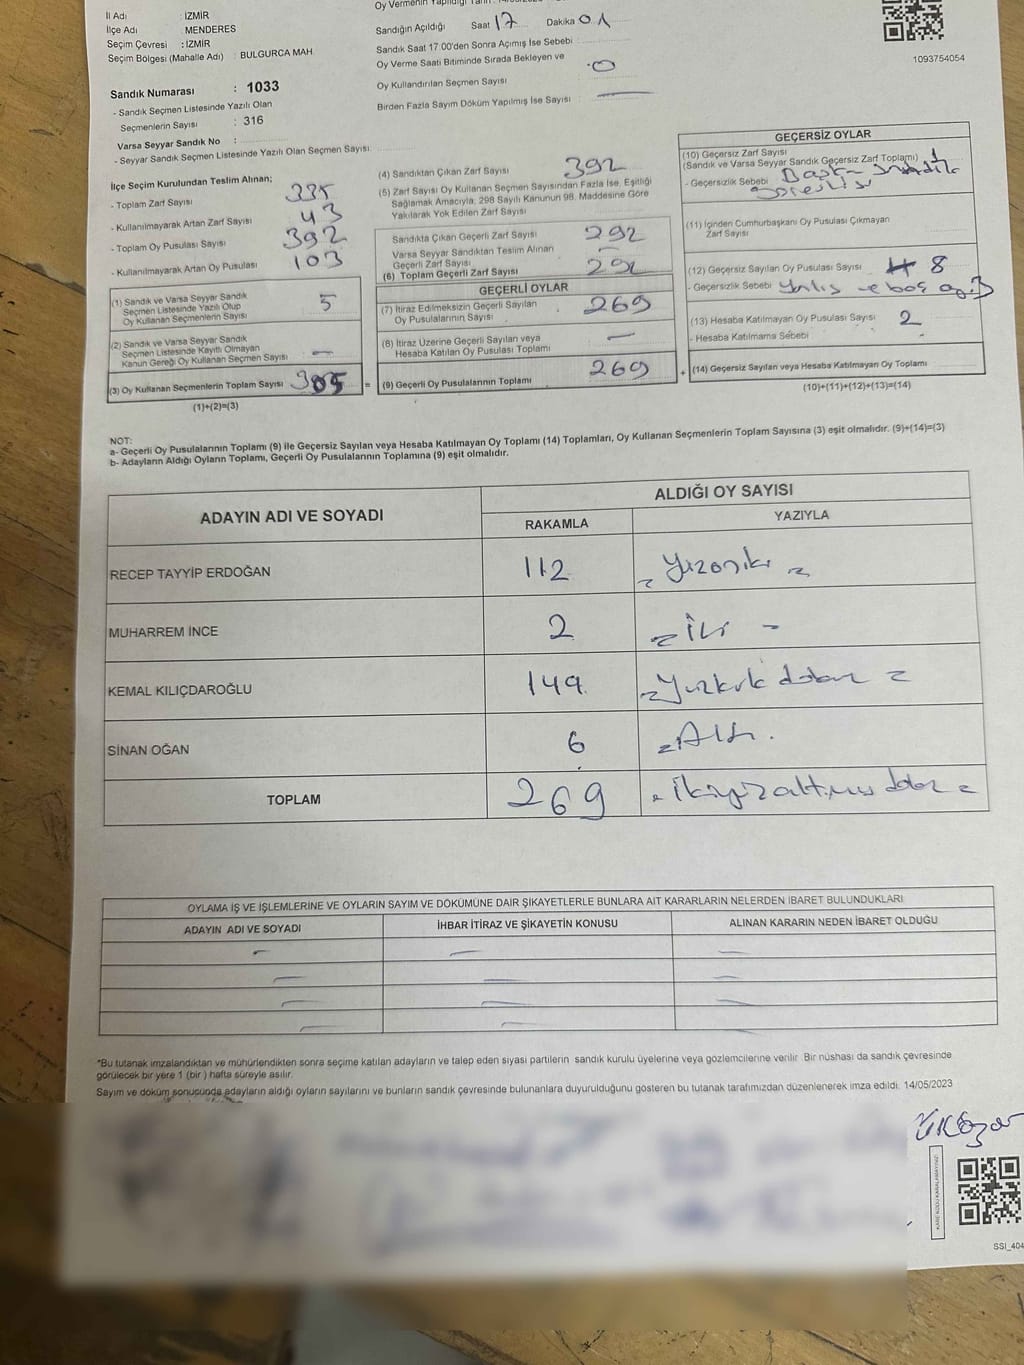 İl Adı : İZMİR
İlçe Adı : MENDERES
Seçim Çevresi : İZMİR
Seçim Bölgesi (Mahalle Adı) : BULGURCA MAH
Sandık Numarası : 1033
- Sandık Seçmen Listesinde Yazılı Olan
Seçmenlerin Sayısı : 316
Varsa Seyyar Sandık No :
- Seyyar Sandık Seçmen Listesinde Yazılı Olan Seçmen Sayısı.
Oy Vermenin Yapıldığı Tarih
Sandığın Açıldığı Saat 17 Dakika 01
Sandık Saat 17.00'den Sonra Açımış İse Sebebi :
Oy Verme Saati Bitiminde Sırada Bekleyen ve
Oy Kullandırılan Seçmen Sayısı : 0
Birden Fazla Sayım Döküm Yapılmış İse Sayısı :
1093754054
İlçe Seçim Kurulundan Teslim Alınan;
- Toplam Zarf Sayısı 335
- Kullanılmayarak Artan Zarf Sayısı 43
- Toplam Oy Pusulası Sayısı 392
- Kullanılmayarak Artan Oy Pusulası 103
(1) Sandık ve Varsa Seyyar Sandık
Seçmen Listesinde Yazılı Olup
Oy Kullanan Seçmenlerin Sayısı 5
(2) Sandık ve Varsa Seyyar Sandık
Seçmen Listesinde Kayıtlı Olmayan
Kanun Gereği Oy Kullanan Seçmen Sayısı —
(3) Oy Kullanan Seçmenlerin Toplam Sayısı
(1)+(2)=(3)
(4) Sandıktan Çıkan Zarf Sayısı 392
(5) Zarf Sayısı Oy Kullanan Seçmen Sayısından Fazla İse, Eşitliği
Sağlamak Amacıyla, 298 Sayılı Kanunun 98. Maddesine Göre
Yakılarak Yok Edilen Zarf Sayısı
Sandıkta Çıkan Geçerli Zarf Sayısı 292
Varsa Seyyar Sandıktan Teslim Alınan
Geçerli Zarf Sayısı —
(6) Toplam Geçerli Zarf Sayısı 292
GEÇERLİ OYLAR
(7) İtiraz Edilmeksizin Geçerli Sayılan
Oy Pusulalarının Sayısı 269
(8) İtiraz Üzerine Geçerli Sayılan veya
Hesaba Katılan Oy Pusulası Toplamı —
= (9) Geçerli Oy Pusulalarının Toplamı 269
GEÇERSİZ OYLAR
(10) Geçersiz Zarf Sayısı
(Sandık ve Varsa Seyyar Sandık Geçersiz Zarf Toplamı) 1
- Geçersizlik Sebebi
(11) İçinden Cumhurbaşkanı Oy Pusulası Çıkmayan
Zarf Sayısı
(12) Geçersiz Sayılan Oy Pusulası Sayısı 8
- Geçersizlik Sebebi Yanlış ve boş
(13) Hesaba Katılmayan Oy Pusulası Sayısı 2
- Hesaba Katılmama Sebebi -
+ (14) Geçersiz Sayılan veya Hesaba Katılmayan Oy Toplamı
(10)+(11)+(12)+(13)=(14)
NOT:
a- Geçerli Oy Pusulalarının Toplamı (9) ile Geçersiz Sayılan veya Hesaba Katılmayan Oy Toplamı (14) Toplamları, Oy Kullanan Seçmenlerin Toplam Sayısına (3) eşit olmalıdır. (9)+(14)=(3)
b- Adayların Aldığı Oyların Toplamı, Geçerli Oy Pusulalarının Toplamına (9) eşit olmalıdır.
ADAYIN ADI VE SOYADI ALDIĞI OY SAYISI
RAKAMLA YAZIYLA
RECEP TAYYİP ERDOĞAN 112 = Yüzoniki =
MUHARREM İNCE 2 = İki -
KEMAL KILIÇDAROĞLU 149 = Yüzkırk dokuz =
SİNAN OĞAN 6 = Altı.
TOPLAM 269 = ikiyüzaltmış dokuz =
OYLAMA İŞ VE İŞLEMLERİNE VE OYLARIN SAYIM VE DÖKÜMÜNE DAİR ŞİKAYETLERLE BUNLARA AİT KARARLARIN NELERDEN İBARET BULUNDUKLARI
ADAYIN ADI VE SOYADI İHBAR İTİRAZ VE ŞİKAYETİN KONUSU ALINAN KARARIN NEDEN İBARET OLDUĞU
*Bu tutanak imzalandıktan ve mühürlendikten sonra seçime katılan adayların ve talep eden siyasi partilerin sandık kurulu üyelerine veya gözlemcilerine verilir. Bir nüshası da sandık çevresinde
görülecek bir yere 1 (bir ) hafta süreyle asılır.
Sayım ve döküm sonucunda adayların aldığı oyların sayılarını ve bunların sandık çevresinde bulunanlara duyurulduğunu gösteren bu tutanak tarafımızdan düzenlenerek imza edildi. 14/05/2023
SSI_404